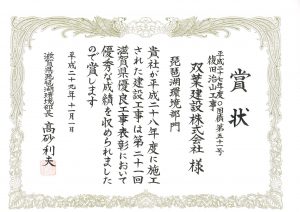 賞状
平成二十七年度〇国補第五十一号
復旧治山工事
双葉建設株式会社 様
琵琶湖環境部門
貴社が平成二十八年度に施工
された建設工事は第二十一回
滋賀県優良工事表彰において
優秀な成績を収められました
ので賞します
平成二十九年十一月一日
滋賀県琵琶湖環境部長 高砂利夫